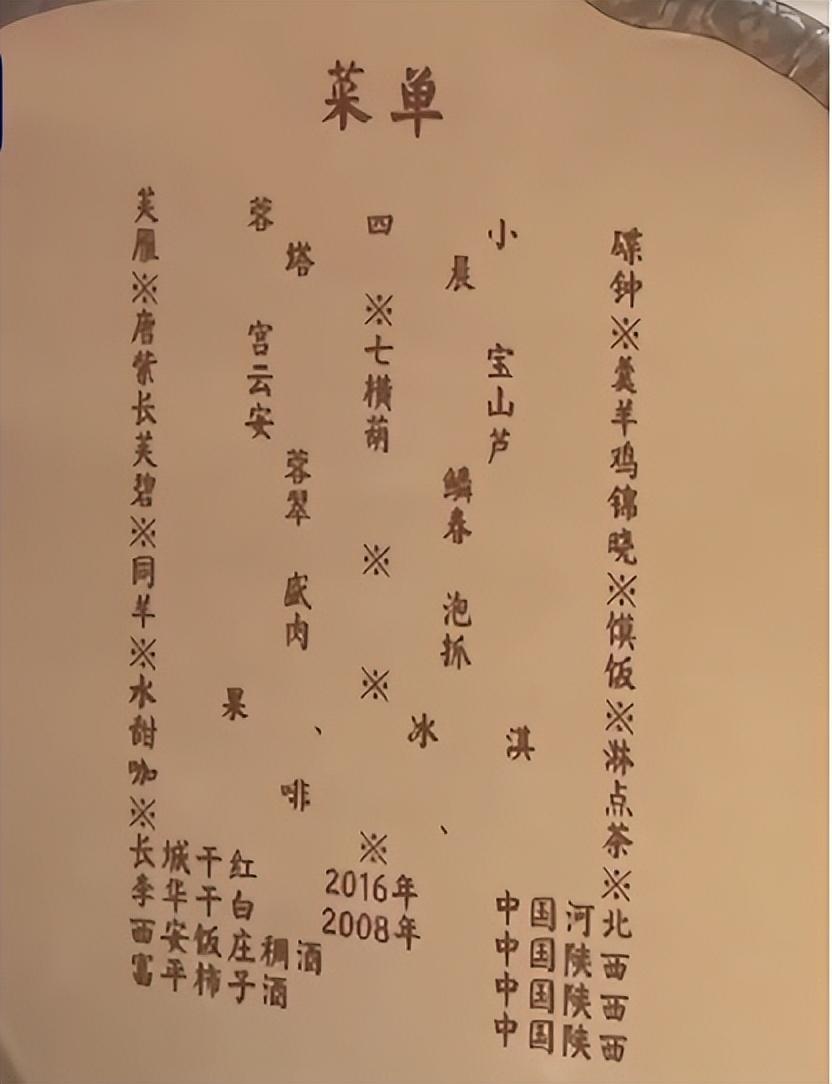 菜单
芙蓉四小碟
雁塔晨钟
※ ※ ※
唐宫七宝羹
紫云横山羊
长安葫芦鸡
芙蓉鳞锦
碧翠春晓
※ ※ ※
同盛泡馍
羊肉抓饭
※ ※ ※
水果、冰淇淋
甜点
咖啡、茶
※ ※ ※
长城干红 2016年 中国河北
李华干白 2008年 中国陕西
西安饭庄稠酒 中国陕西
富平柿子酒 中国陕西